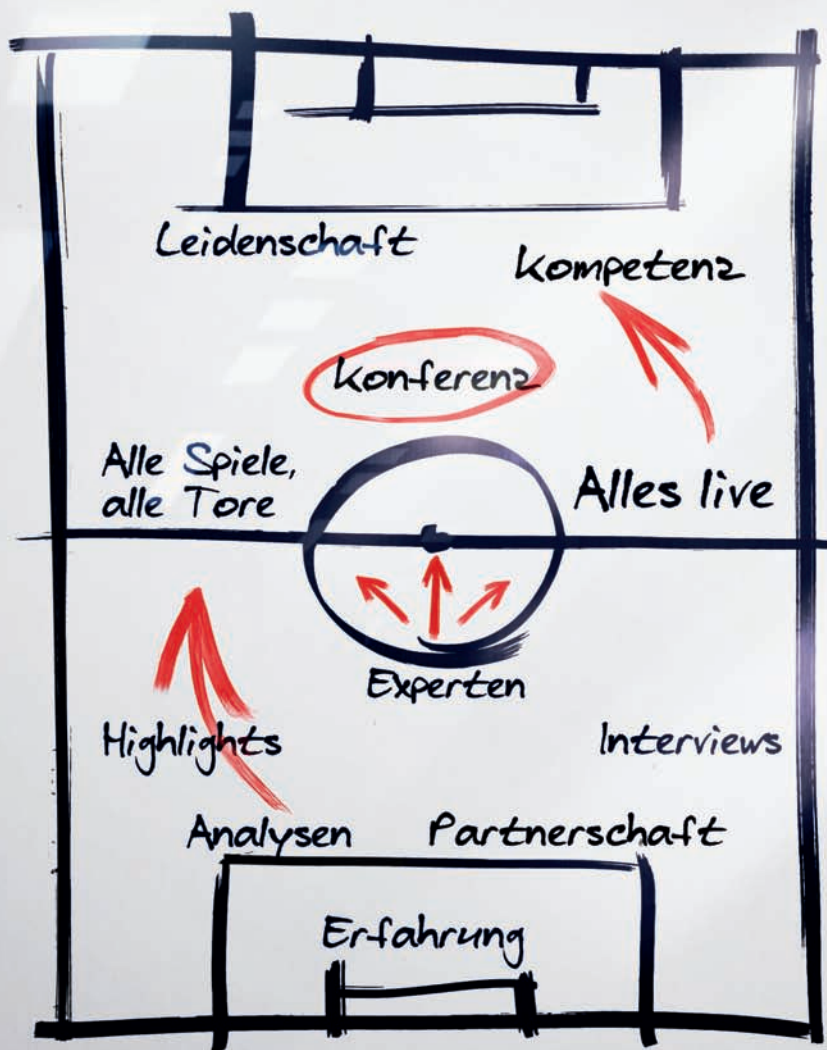 Leidenschaft
Kompetenz
Konferenz
Alle Spiele,
alle Tore
Alles live
Experten
Highlights
Interviews
Analysen
Partnerschaft
Erfahrung